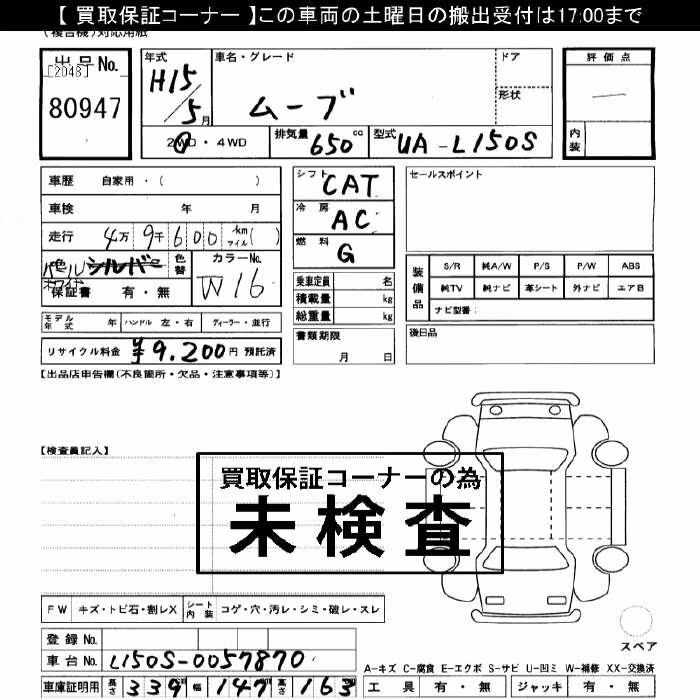 【 買取保証コーナー 】この車両の土曜日の搬出受付は17:00まで
(複合機)対応用紙
出品No.
[2048]
80947
年式
H15/5月
車名・グレード
ムーブ
ドア
形状
評価点
—
内装
2WD・4WD
排気量 650cc
型式 UA-L150S
車歴 自家用・( )
車検 年 月
走行 4万 9千 6 0 0 km マイル ( )
色 シルバー パールホワイト
色替
カラーNo.
W16
保証書 有・無
モデル年式 年 ハンドル 左・右 ディーラー・並行
リサイクル料金 ¥9.200円 預託済
シフト CAT
冷房 AC
燃料 G
乗車定員 名
積載量 kg
総重量 kg
書類期限
月 日
セールスポイント
装備品
S/R 純A/W P/S P/W ABS
純TV 純ナビ 革シート 外ナビ エアB
ナビ型番:
後日品
【出品店申告欄(不良箇所・欠品・注意事項等)】
【検査員記入】
買取保証コーナーの為
未検査
FW キズ・トビ石・割レX シート内装 コゲ・穴・汚レ・シミ・破レ・スレ
登録No.
車台No. L150S-0057870
車庫証明用 長さ 339 幅 147 高さ 163
スペア
A-キズ C-腐食 E-エクボ S-サビ U-凹ミ W-補修 XX-交換済
工具 有・無 ジャッキ 有・無